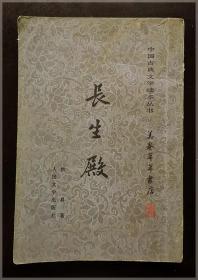 中国古典文学读本丛书
長生殿
洪昇 著
人民文学出版社